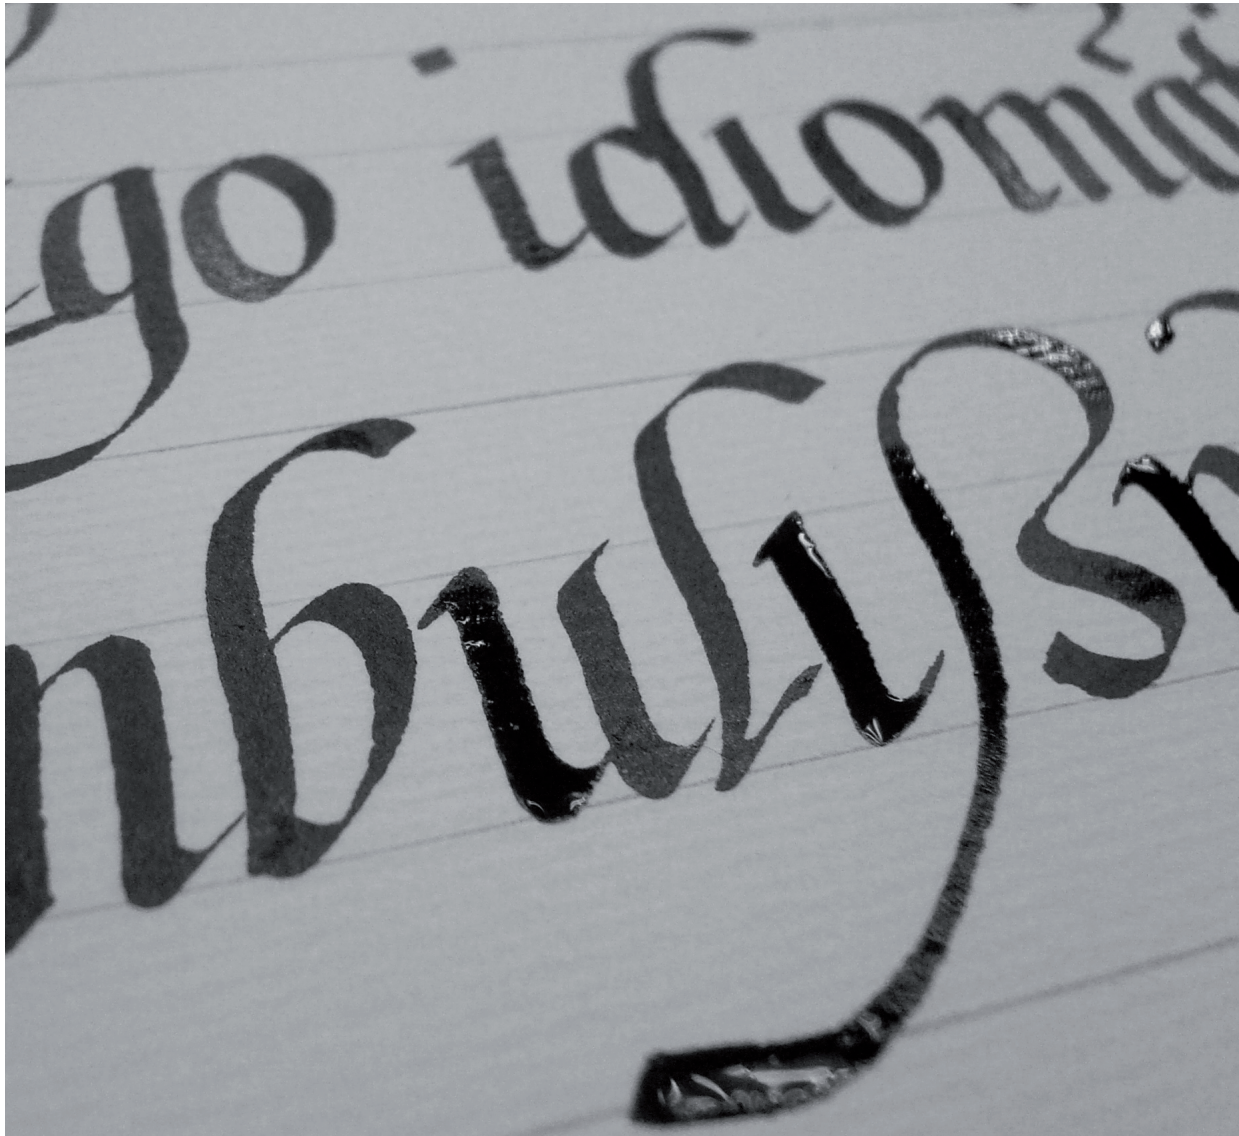 go idiomat
nbulıßn